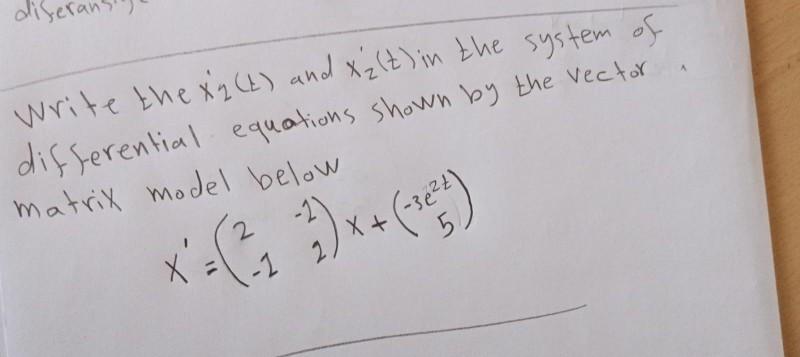 diferansiye
Write the x'1(t) and x'2(t) in the system of
differential equations shown by the vector
matrix model below
X' = (2 -1
-1 2) X + (-3e^2t
5)